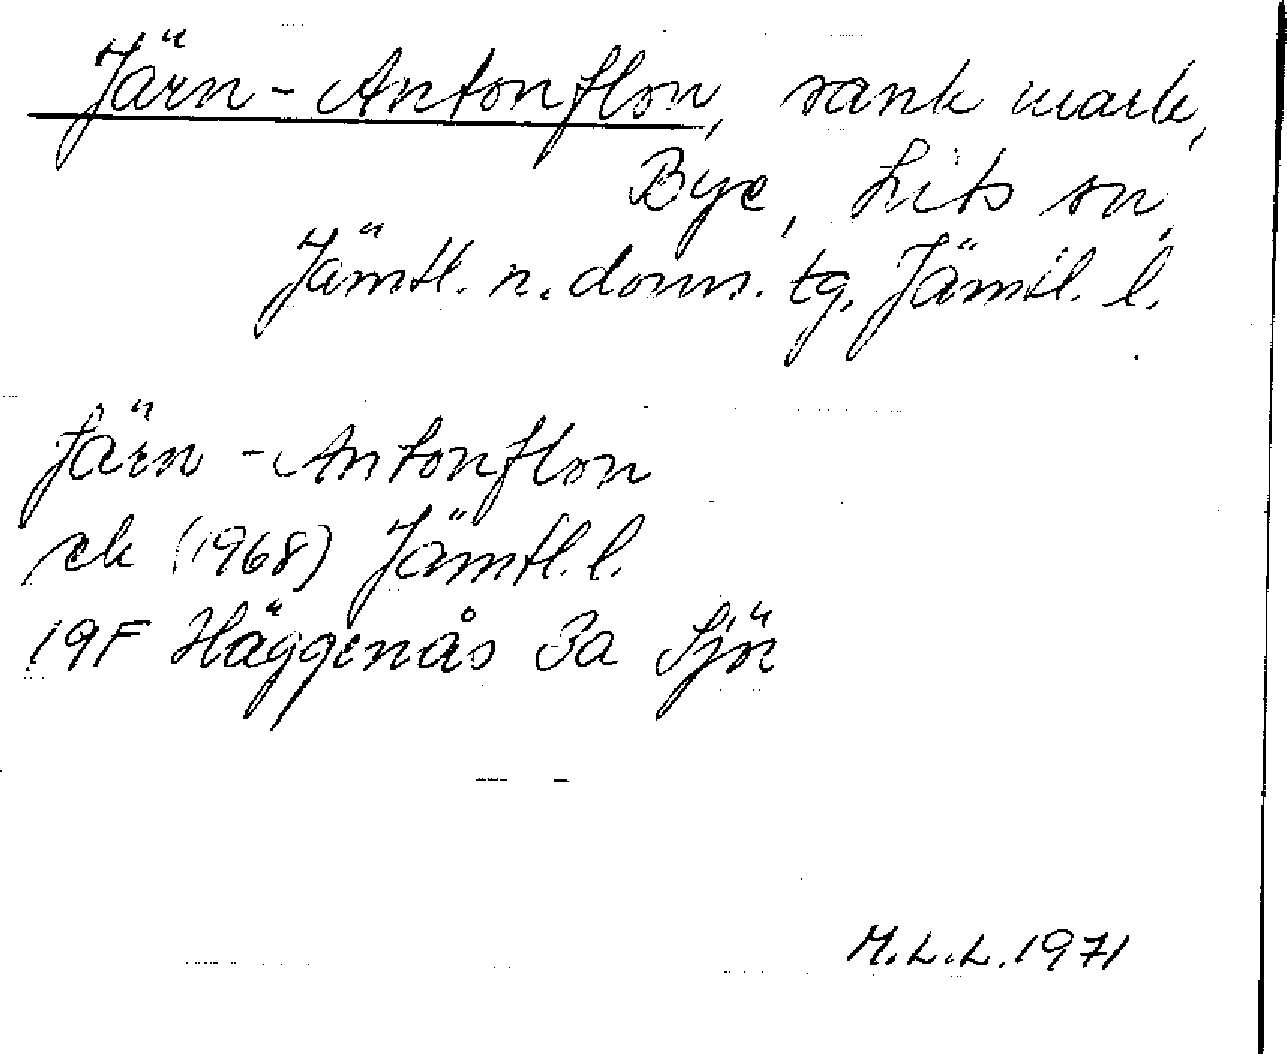 Järn-Antonflon, sank mark,
Bye, Lits sn,
Jämtl. n. doms. tg. Jämtl. l.
Järn-Antonflon
ek (1968) Jämtl. l.
19F Häggenås 3a Sjör
M.L.L. 1971